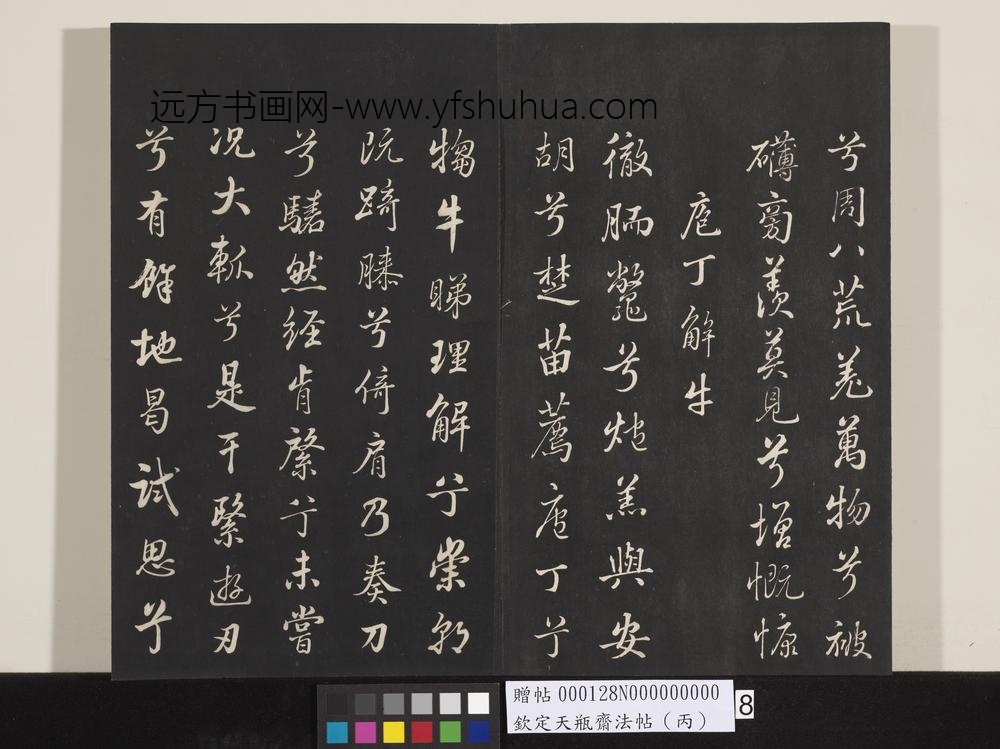 远方书画网-www.yfshuhua.com
兮周八荒羌萬物兮被
礴豪羨莫見兮增慨慷
庖丁解牛
徹胹鼈兮炮羔與安
胡兮楚苗薦庖丁兮
犓牛睇理解兮崇朝
既踦膝兮倚肩乃奏刀
兮騞然经肯綮兮未嘗
况大軱兮是干緊遊刃
兮有餘地曷試思兮
贈帖 000128N000000000
欽定天瓶齋法帖（丙）
8